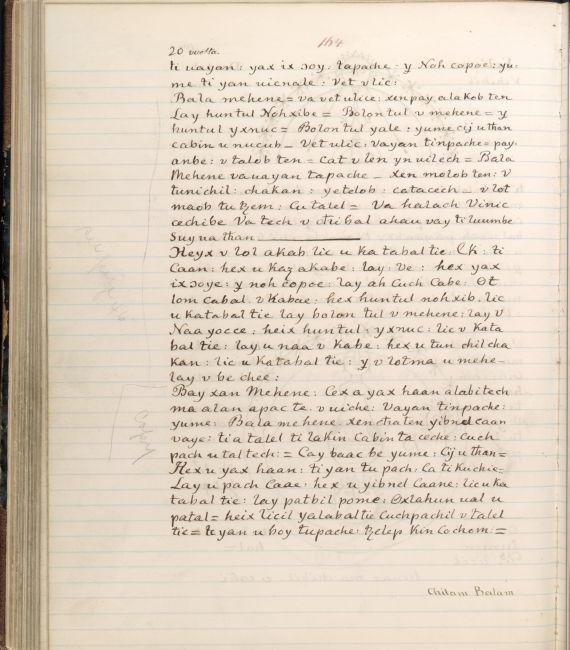 164
20 vuelta.
ti uayan: yax ix ɔoy: tapache - y Noh copoe: yu-
me ti yan uicnale: Vet vlic:
Bala mehene = va vet ulice: xen pay alakob ten
Lay huntul Nohxibe = Bolon tul v mehene = y
huntul yxnuc = Bolon tul yale: yume cij u than
cabin u nucub - Vet ulic: vayan tinpache = pay.
anbe: v talob ten = cat v len yn uilech = Bala
Mehene va uayan tapache - xen molob ten: v
tunichil: chakan: yetdob: catacech - v lot
maob tu tzem: Cu talel = Va halach Vinic
cechibe Va tech v dribal ahau vay ti luumbe
suyua than
Heyx v lol akab lic u katabal tie: Ck: ti
Caan: hex u kaz akabe: lay: Ve: hex yax
ix ɔoye: y noh copoe: lay ah Cuch Cabe: Ot
lom cabal. v kabae: hex huntul noh xib. lic
u katabal tie lay bolon tul v mehene: lay v
Naa yocce: heix huntul: yxnuc: lic v kata
bal tie: lay u naa v kabe: hex u tun chil cha
kan: lic u katabal tie: y v lotma u mehe-
lay v be chee:
Bay xan Mehene: Cex a yax haan alabitech
ma alan apac te. v uiche: Vayan tinpache:
yume: Bala mehene xen chaten yibnel caan
vaye: ti a talel ti lakin Cabin ta ceche: cuch
pach u tal tech: = Cay baac be yume: Cij u than =
Hex u yax haan: ti yan tu pach: Ca ti kuchie=
Lay u pach Caae: hex u yibnel Caane: lic u ka
tabal tie: lay patbil pome: Oxlahun ual u
patal = heix licil yalabal tie Cuchpachil v talel
tie = te yan u boy tupache: tzelep Kin Cochom: =
Copy
Chilam Balam